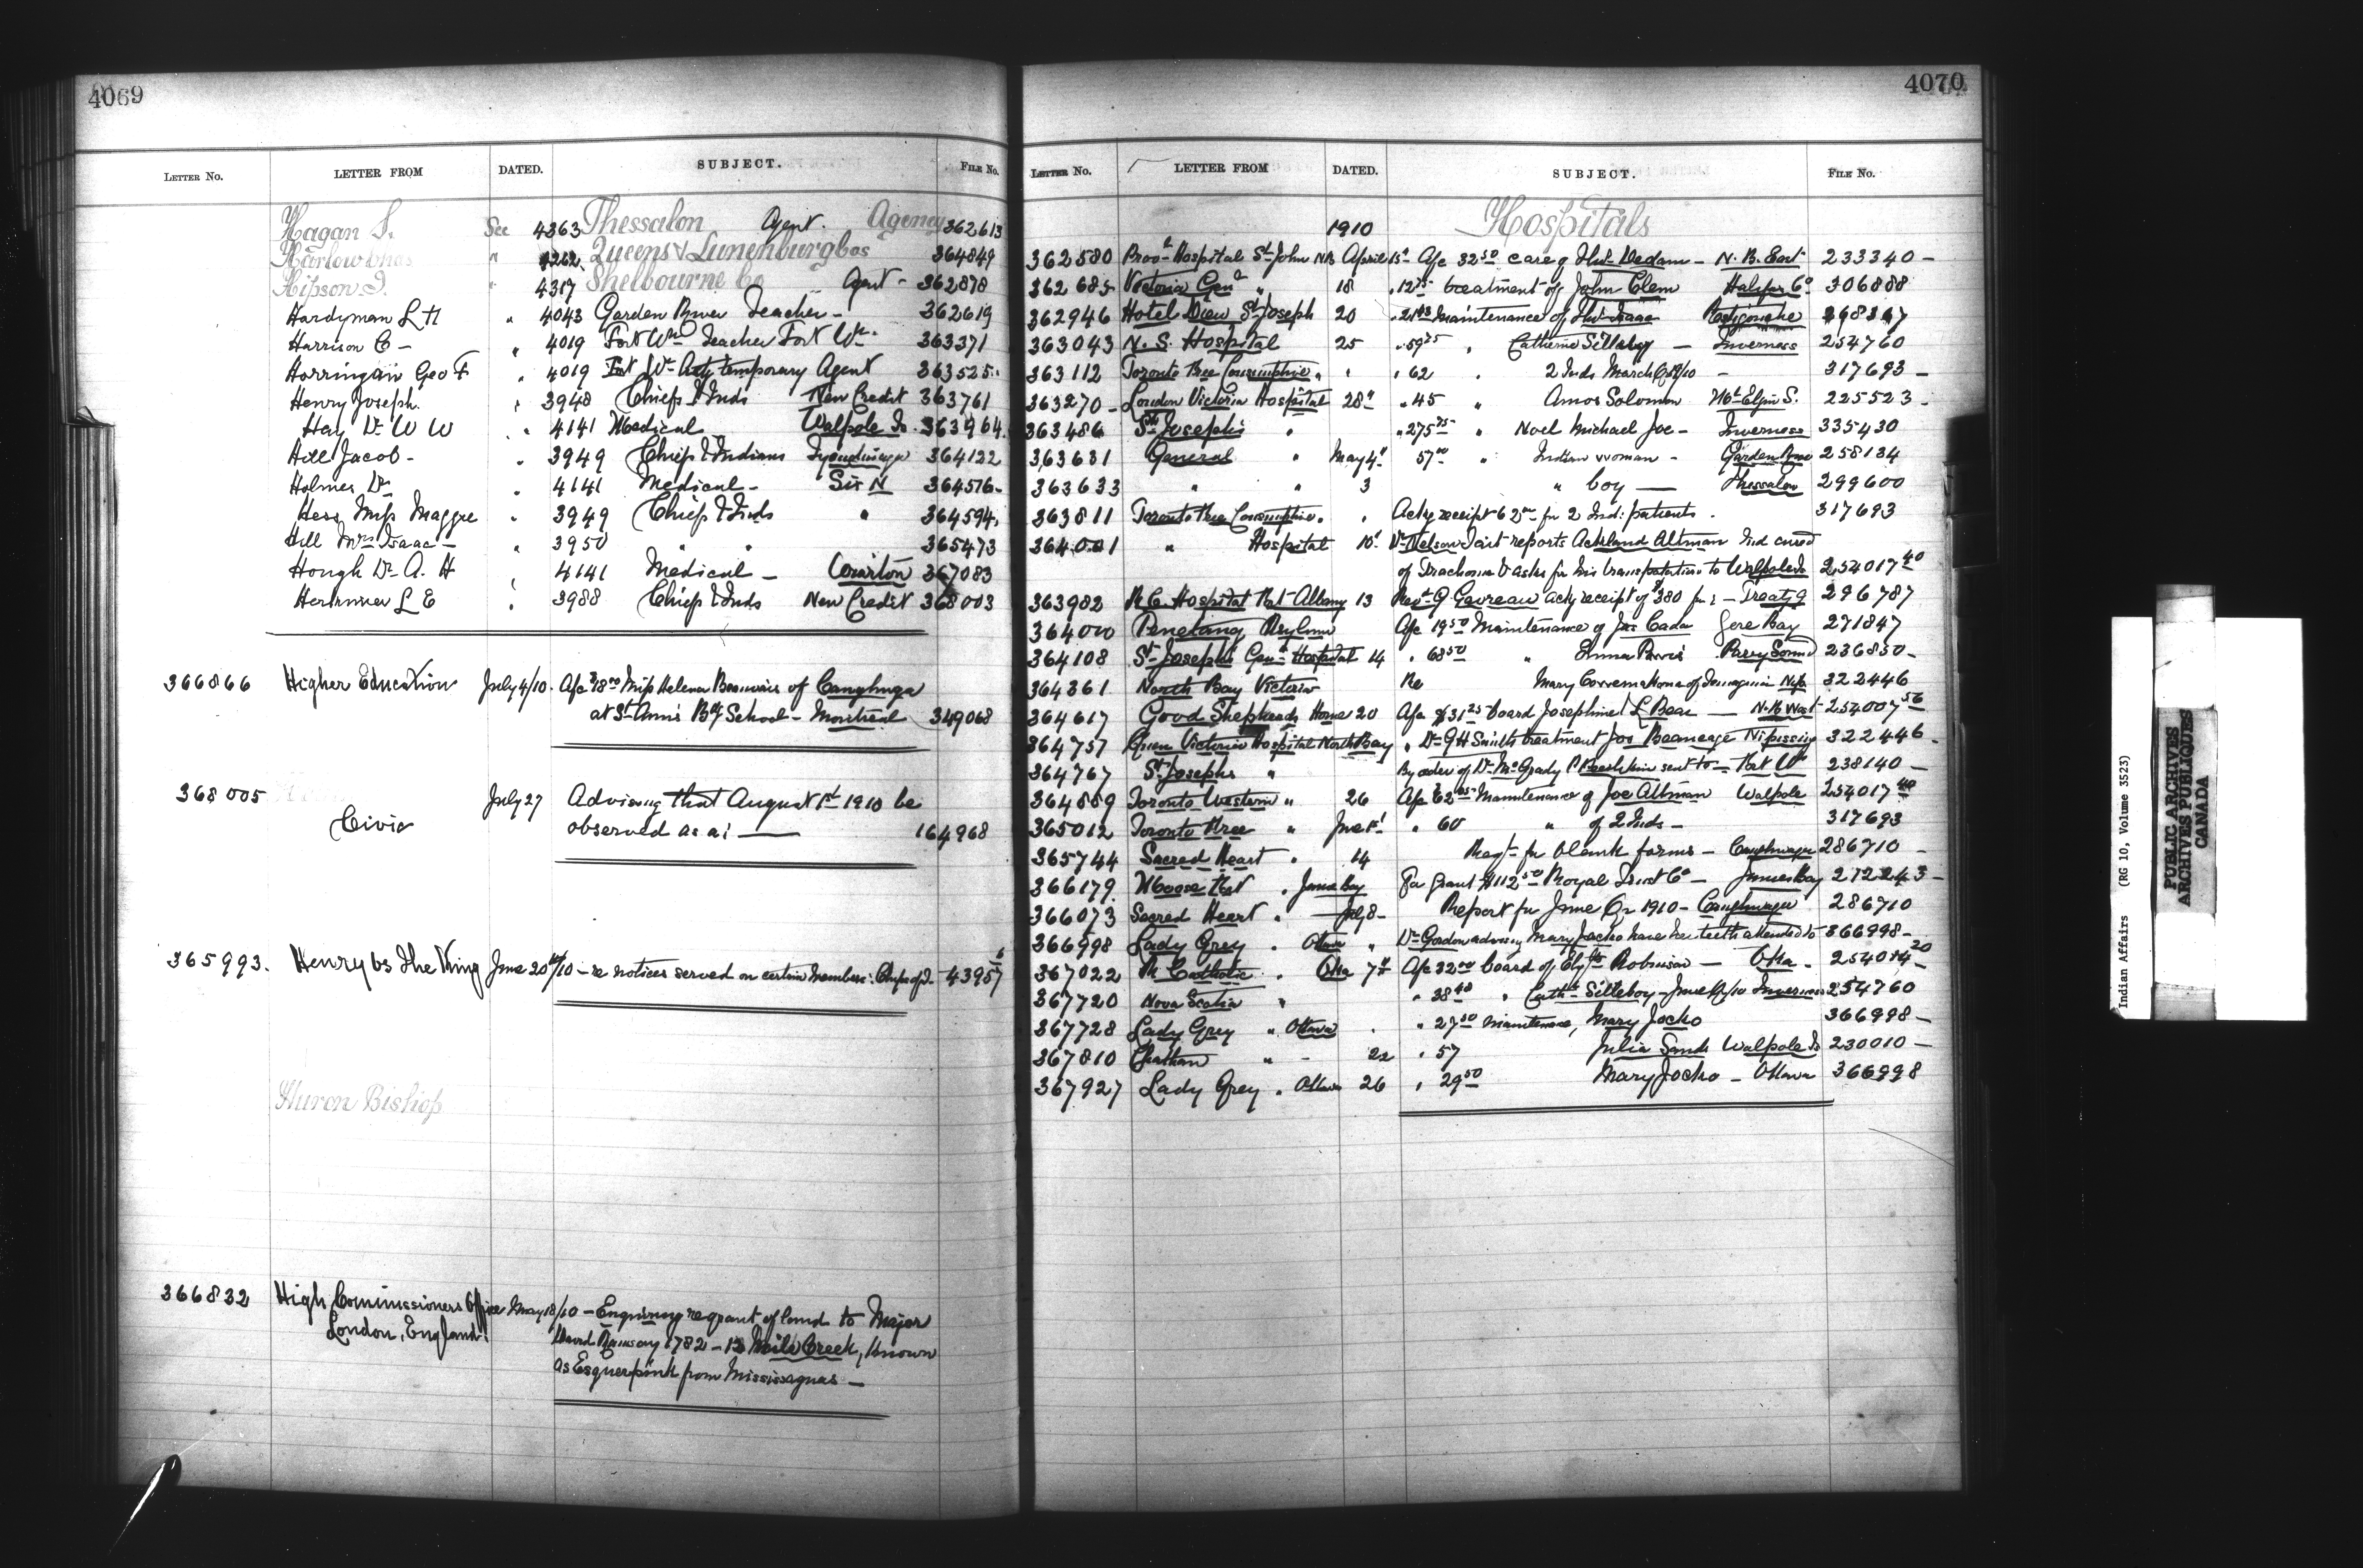 4069
LETTER No. LETTER FROM DATED. SUBJECT. FILE No.
Hagan S. See 4363 Thessalon Agent. Agency 362613
Harlow Chas " 4262 Queens & Lunenburg Cos 364849
Hipson J. " 4317 Shelbourne Co Agent - 362878
Hardyman L H " 4043 Garden River Teacher - 362619
Harrison C - " 4019 Fort Wm Teacher Fort Wm. 363371
Geo F " 4019 Fort Wm temporary Agent 363525
Henry Joseph. " 3948 Chiefs & Inds New Credit 363761
Hay Dr W W " 4141 Medical Walpole Is. 363964
Hill Jacob - " 3949 Chiefs & Indians Tyendinaga 364122
Holmes Dr " 4141 Medical - Six N 364576
Hess Miss Maggie " 3949 Chiefs & Inds " 364594
Hill Mrs Isaac - " 3950 " " 365473
Hough Dr A. H " 4141 Medical - Wiarton 367083
L E " 3988 Chiefs & Inds New Credit 368003
366866 Higher Education July 4/10. Miss Helena Beauvais of Caughnaga
at St Ann's School - Montreal 349068
368005 Civic July 27 Advising that August 1st 1910 be
observed as a: 164968
365993. Henry vs The King June 20th/10 - re notices served on certain members. 43957 6
Huron Bishop
366832 High Commissioners Office May 18/10 - Enquiring re grant of land to Major
London, England. David Ramsay 1782 - 12 Mile Creek, known
as Esquerpink from Mississaguas -
4070
LETTER No. LETTER FROM DATED. SUBJECT. FILE No.
1910 Hospitals
362580 Hospital St John NB April 15 A/c 32 50 care of Dedam - N. B. East 233340 -
362685 Victoria Genl " 18 " treatment of John Clem Halifax Co 306888
362946 Hotel Dieu St Joseph 20 " Maintenance of Isaac Restigouche
363043 N. S. Hospital 25 " 59 25 " Catherine Silleboy - Inverness 254760
363112 Toronto Free Consumptive " " " 62 " 2 Inds March 1910 - 317693 -
363270 - London Victoria Hospital 28" " 45 " Amos Solomon Wt Elgin S. 225523 -
363486 St Josephs " " 275 75 " Noel Michael Joe - Inverness 335430
363631 General " May 4" 57 00 " Indian woman - Garden River 258134
363633 " " 3 " boy - Thessalon 299600
363811 Toronto Free Consumptive " " Ackg receipt 62 00 for 2 Ind: patients. 317693
364001 " Hospital 10" Dr Nelson Tait reports Ackland Altman Ind cured
of Trachoma & asks for his transportation to Walpole Is 254017 40
363982 R C. Hospital Fort Albany 13 Revd ackg receipt of $380 for: - Treaty 9 296787
364000 Penetang Asylum A/c 19 50 Maintenance of Jas Cada Gore Bay 271847
364108 St Josephs Genl Hospital 14 " 68 50 " Parry Sound 236850 -
364361 North Bay Victoria Re Mary 322446
364617 Good Shepherds Home 20 A/c $31 25 board Josephine L Bear - N. B West 254007 56
364757 Queen Victoria Hospital North Bay " Dr G H Smiths treatment Jos Nipissing 322446 -
364767 St Josephs " By order of Dr McGrady sent to - Fort Wm 238140 -
364889 Toronto Western " 26 Maintenance of Joe Altman Walpole 254017 40
365012 Toronto Free " June 1st " 60 " of 2 Inds - 317693
365744 Sacred Heart " 14 Reqt for blank forms - Caughnaga 286710 -
366179 Moose Fort " James Bay For Grant $112 50 Royal Trust Co - James Bay 272243 -
366073 Sacred Heart " July 8 - Report for June Qr 1910 - Caughnaga 286710
366998 Lady Grey " Ottawa " Dr Gordon advising Mary Jocko have her teeth attended to 366998 -
367022 R Catholic " Oka 7th A/c 32 00 board of Robinson - Oka - 254014 20
367720 Nova Scotia " " 38 40 " Cathe Silleboy - June Qr/10 Inverness 254760
367728 Lady Grey " Ottawa " " 27 50 maintenance, Mary Jocko 366998 -
367810 Chatham " - 22 " 57 Julia Sands Walpole Is 230010 -
367927 Lady Grey " Ottawa 26 " 29 50 Mary Jocko - Ottawa 366998
Indian Affairs (RG 10, Volume 3523)
PUBLIC ARCHIVES
ARCHIVES PUBLIQUES
CANADA